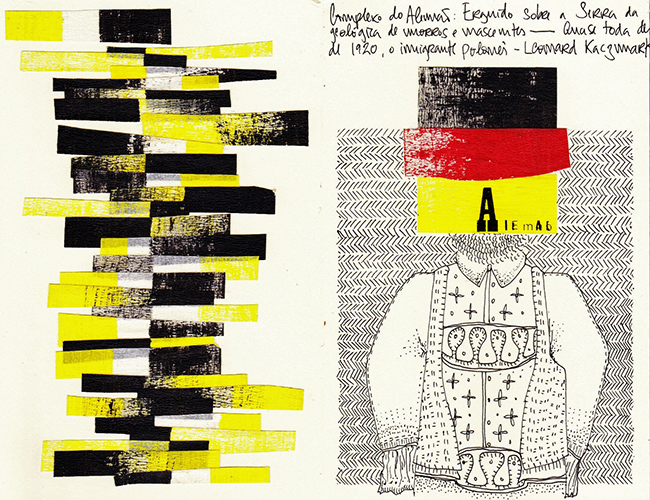 Complexo do Alemão: Erguido sobre a Serra da
geológica de morros e nascentes — Quase toda de
de 1920, o imigrante polonês - Leonard Kaczmark
AlEmAò